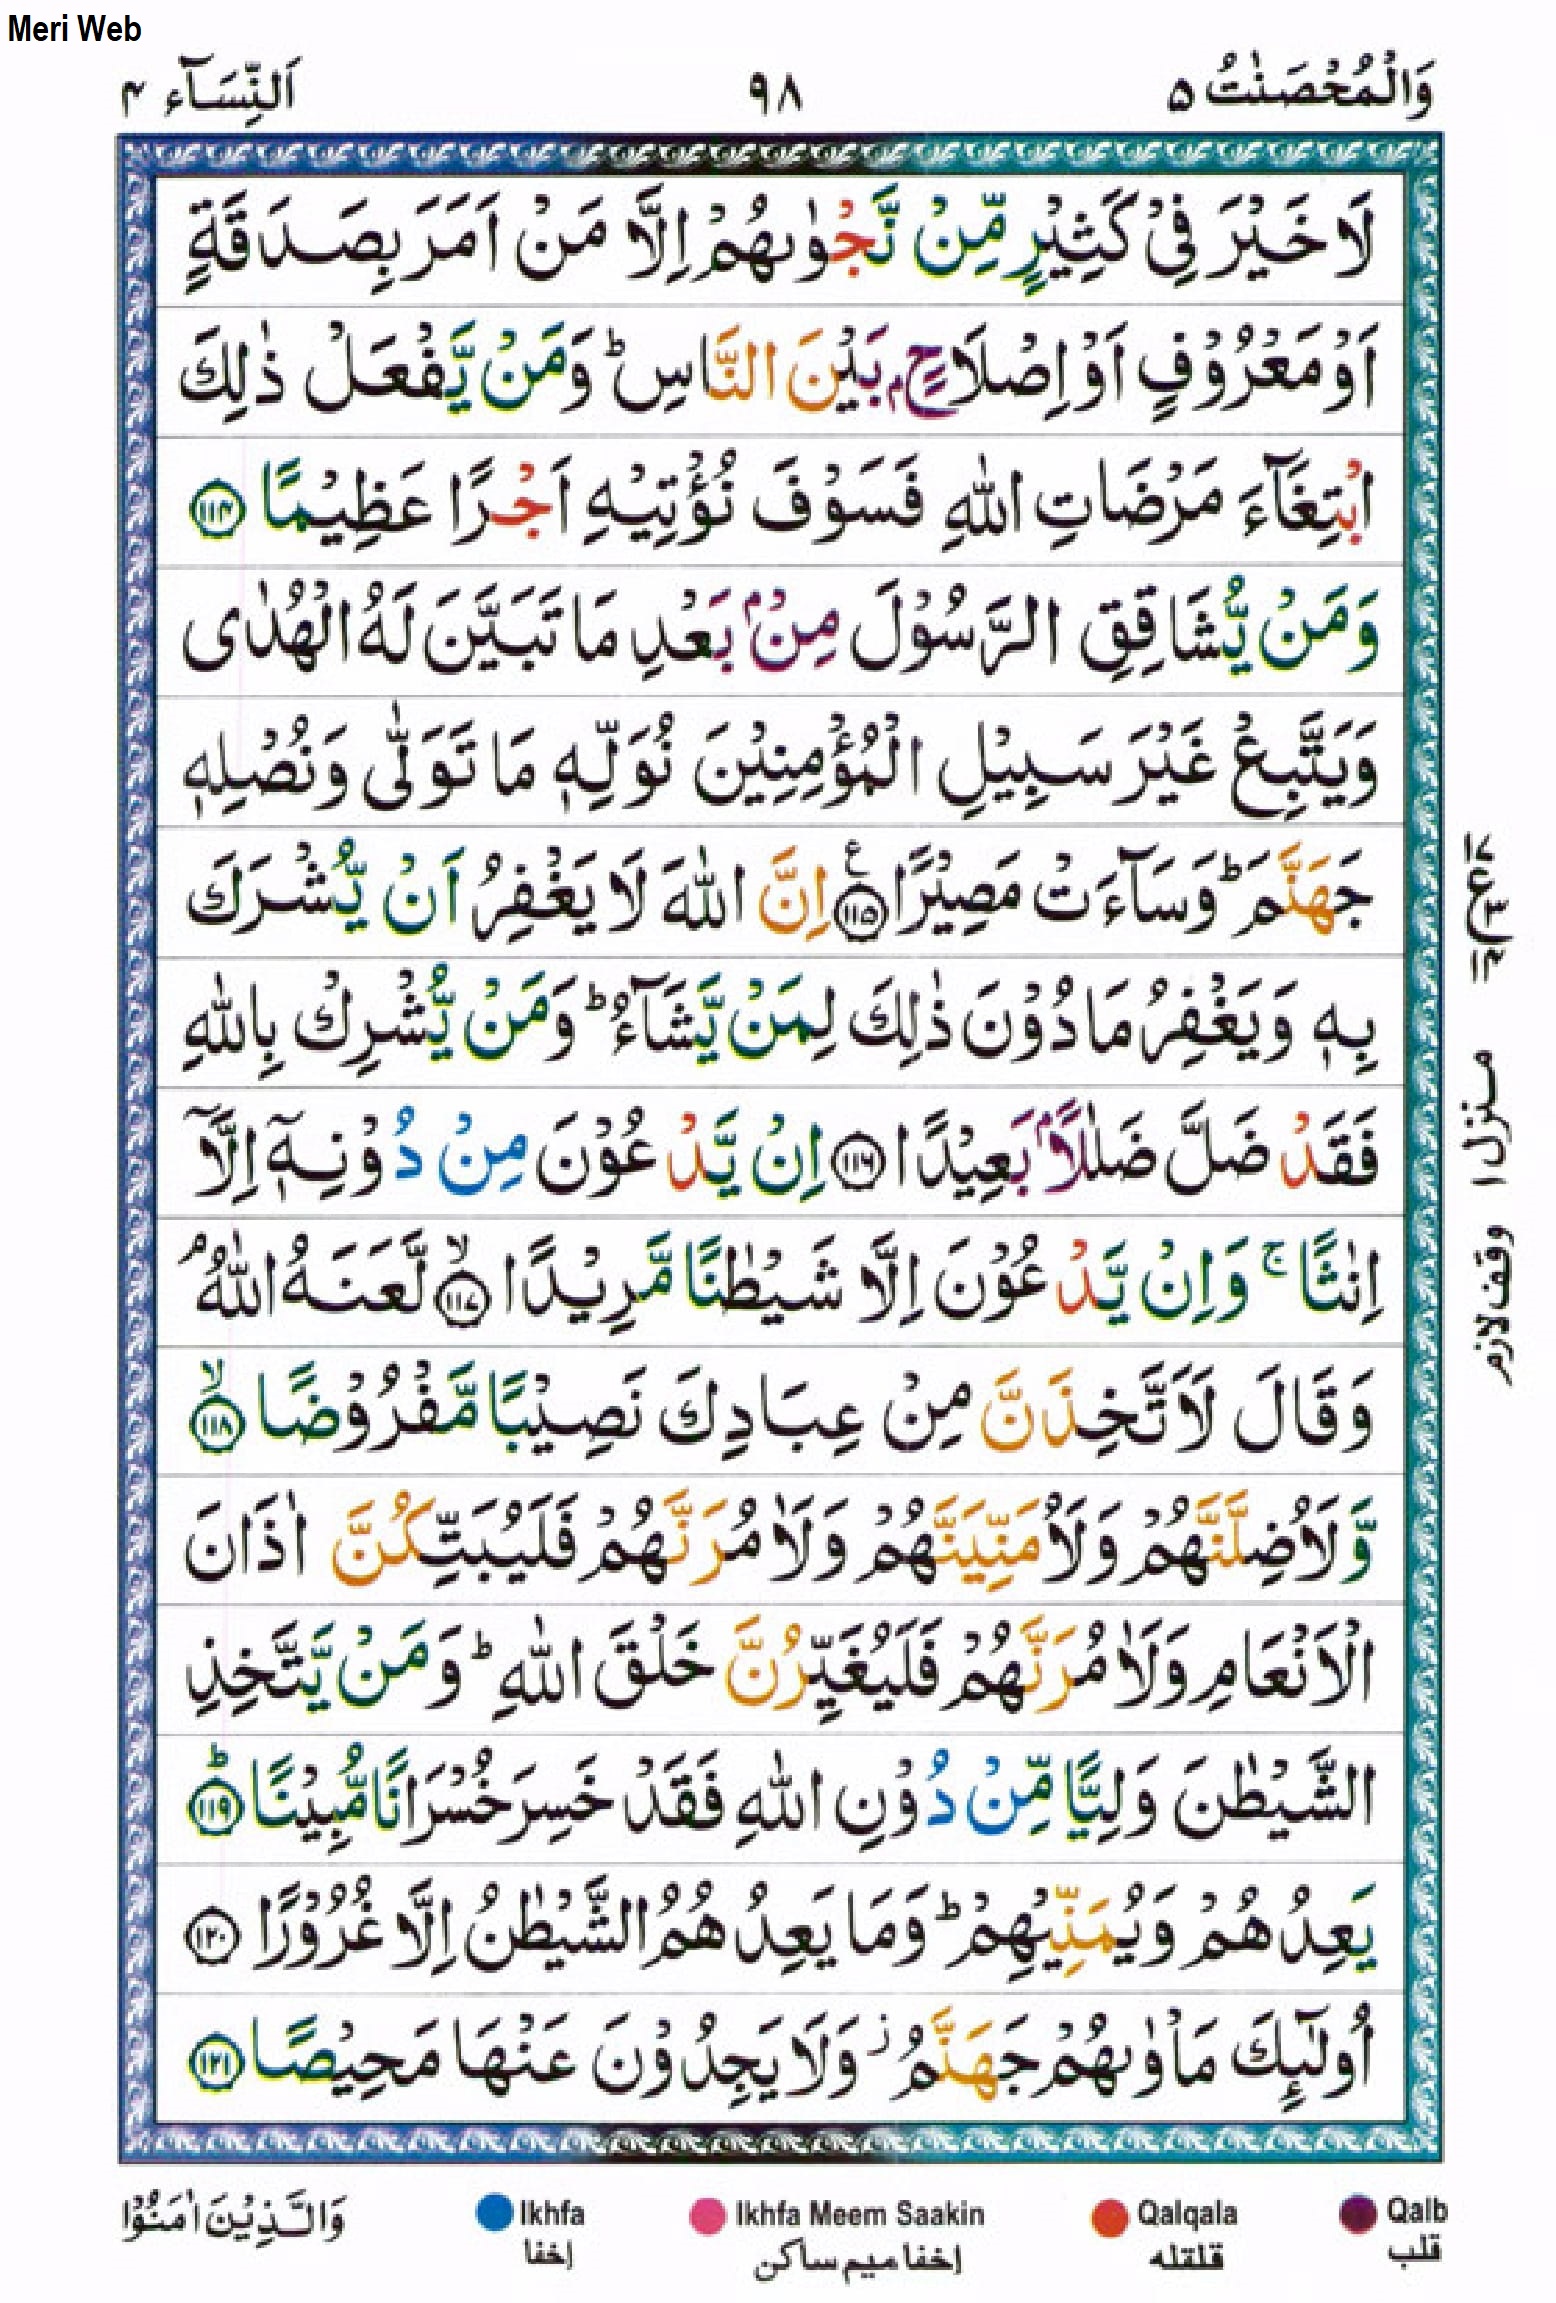 Meri Web
وَالْمُحْصَنٰتُ ۵
۹۸
اَلنِّسَآء ۴
لَا خَيْرَ فِىْ كَثِيْرٍ مِّنْ نَّجْوٰىهُمْ اِلَّا مَنْ اَمَرَ بِصَدَقَةٍ
اَوْ مَعْرُوْفٍ اَوْ اِصْلَاحٍۭ بَيْنَ النَّاسِ ؕ وَمَنْ يَّفْعَلْ ذٰلِكَ
ابْتِغَآءَ مَرْضَاتِ اللّٰهِ فَسَوْفَ نُؤْتِيْهِ اَجْرًا عَظِيْمًا ۱۱۴
وَمَنْ يُّشَاقِقِ الرَّسُوْلَ مِنْۢ بَعْدِ مَا تَبَيَّنَ لَهُ الْهُدٰى
وَيَتَّبِعْ غَيْرَ سَبِيْلِ الْمُؤْمِنِيْنَ نُوَلِّهٖ مَا تَوَلّٰى وَنُصْلِهٖ
جَهَنَّمَ ؕ وَسَآءَتْ مَصِيْرًا ۱۱۵ ع اِنَّ اللّٰهَ لَا يَغْفِرُ اَنْ يُّشْرَكَ
بِهٖ وَيَغْفِرُ مَا دُوْنَ ذٰلِكَ لِمَنْ يَّشَآءُ ؕ وَمَنْ يُّشْرِكْ بِاللّٰهِ
فَقَدْ ضَلَّ ضَلٰلًاۢ بَعِيْدًا ۱۱۶ اِنْ يَّدْعُوْنَ مِنْ دُوْنِهٖۤ اِلَّاۤ
اِنٰثًا ۚ وَاِنْ يَّدْعُوْنَ اِلَّا شَيْطٰنًا مَّرِيْدًا ۱۱۷ ۙ لَّعَنَهُ اللّٰهُ ۘ
وَقَالَ لَاَتَّخِذَنَّ مِنْ عِبَادِكَ نَصِيْبًا مَّفْرُوْضًا ۱۱۸ ۙ
وَّلَاُضِلَّنَّهُمْ وَلَاُمَنِّيَنَّهُمْ وَلَاٰمُرَنَّهُمْ فَلَيُبَتِّكُنَّ اٰذَانَ
الْاَنْعَامِ وَلَاٰمُرَنَّهُمْ فَلَيُغَيِّرُنَّ خَلْقَ اللّٰهِ ؕ وَمَنْ يَّتَّخِذِ
الشَّيْطٰنَ وَلِيًّا مِّنْ دُوْنِ اللّٰهِ فَقَدْ خَسِرَ خُسْرَانًا مُّبِيْنًا ۱۱۹ ؕ
يَعِدُهُمْ وَيُمَنِّيْهِمْ ؕ وَمَا يَعِدُهُمُ الشَّيْطٰنُ اِلَّا غُرُوْرًا ۱۲۰
اُولٰٓئِكَ مَاْوٰىهُمْ جَهَنَّمُ ؗ وَلَا يَجِدُوْنَ عَنْهَا مَحِيْصًا ۱۲۱
منزل ۱
وقف لازم
وَالَّذِيْنَ اٰمَنُوْا
Ikhfa
اخفا
Ikhfa Meem Saakin
اخفا میم ساکن
Qalqala
قلقله
Qalb
قلب